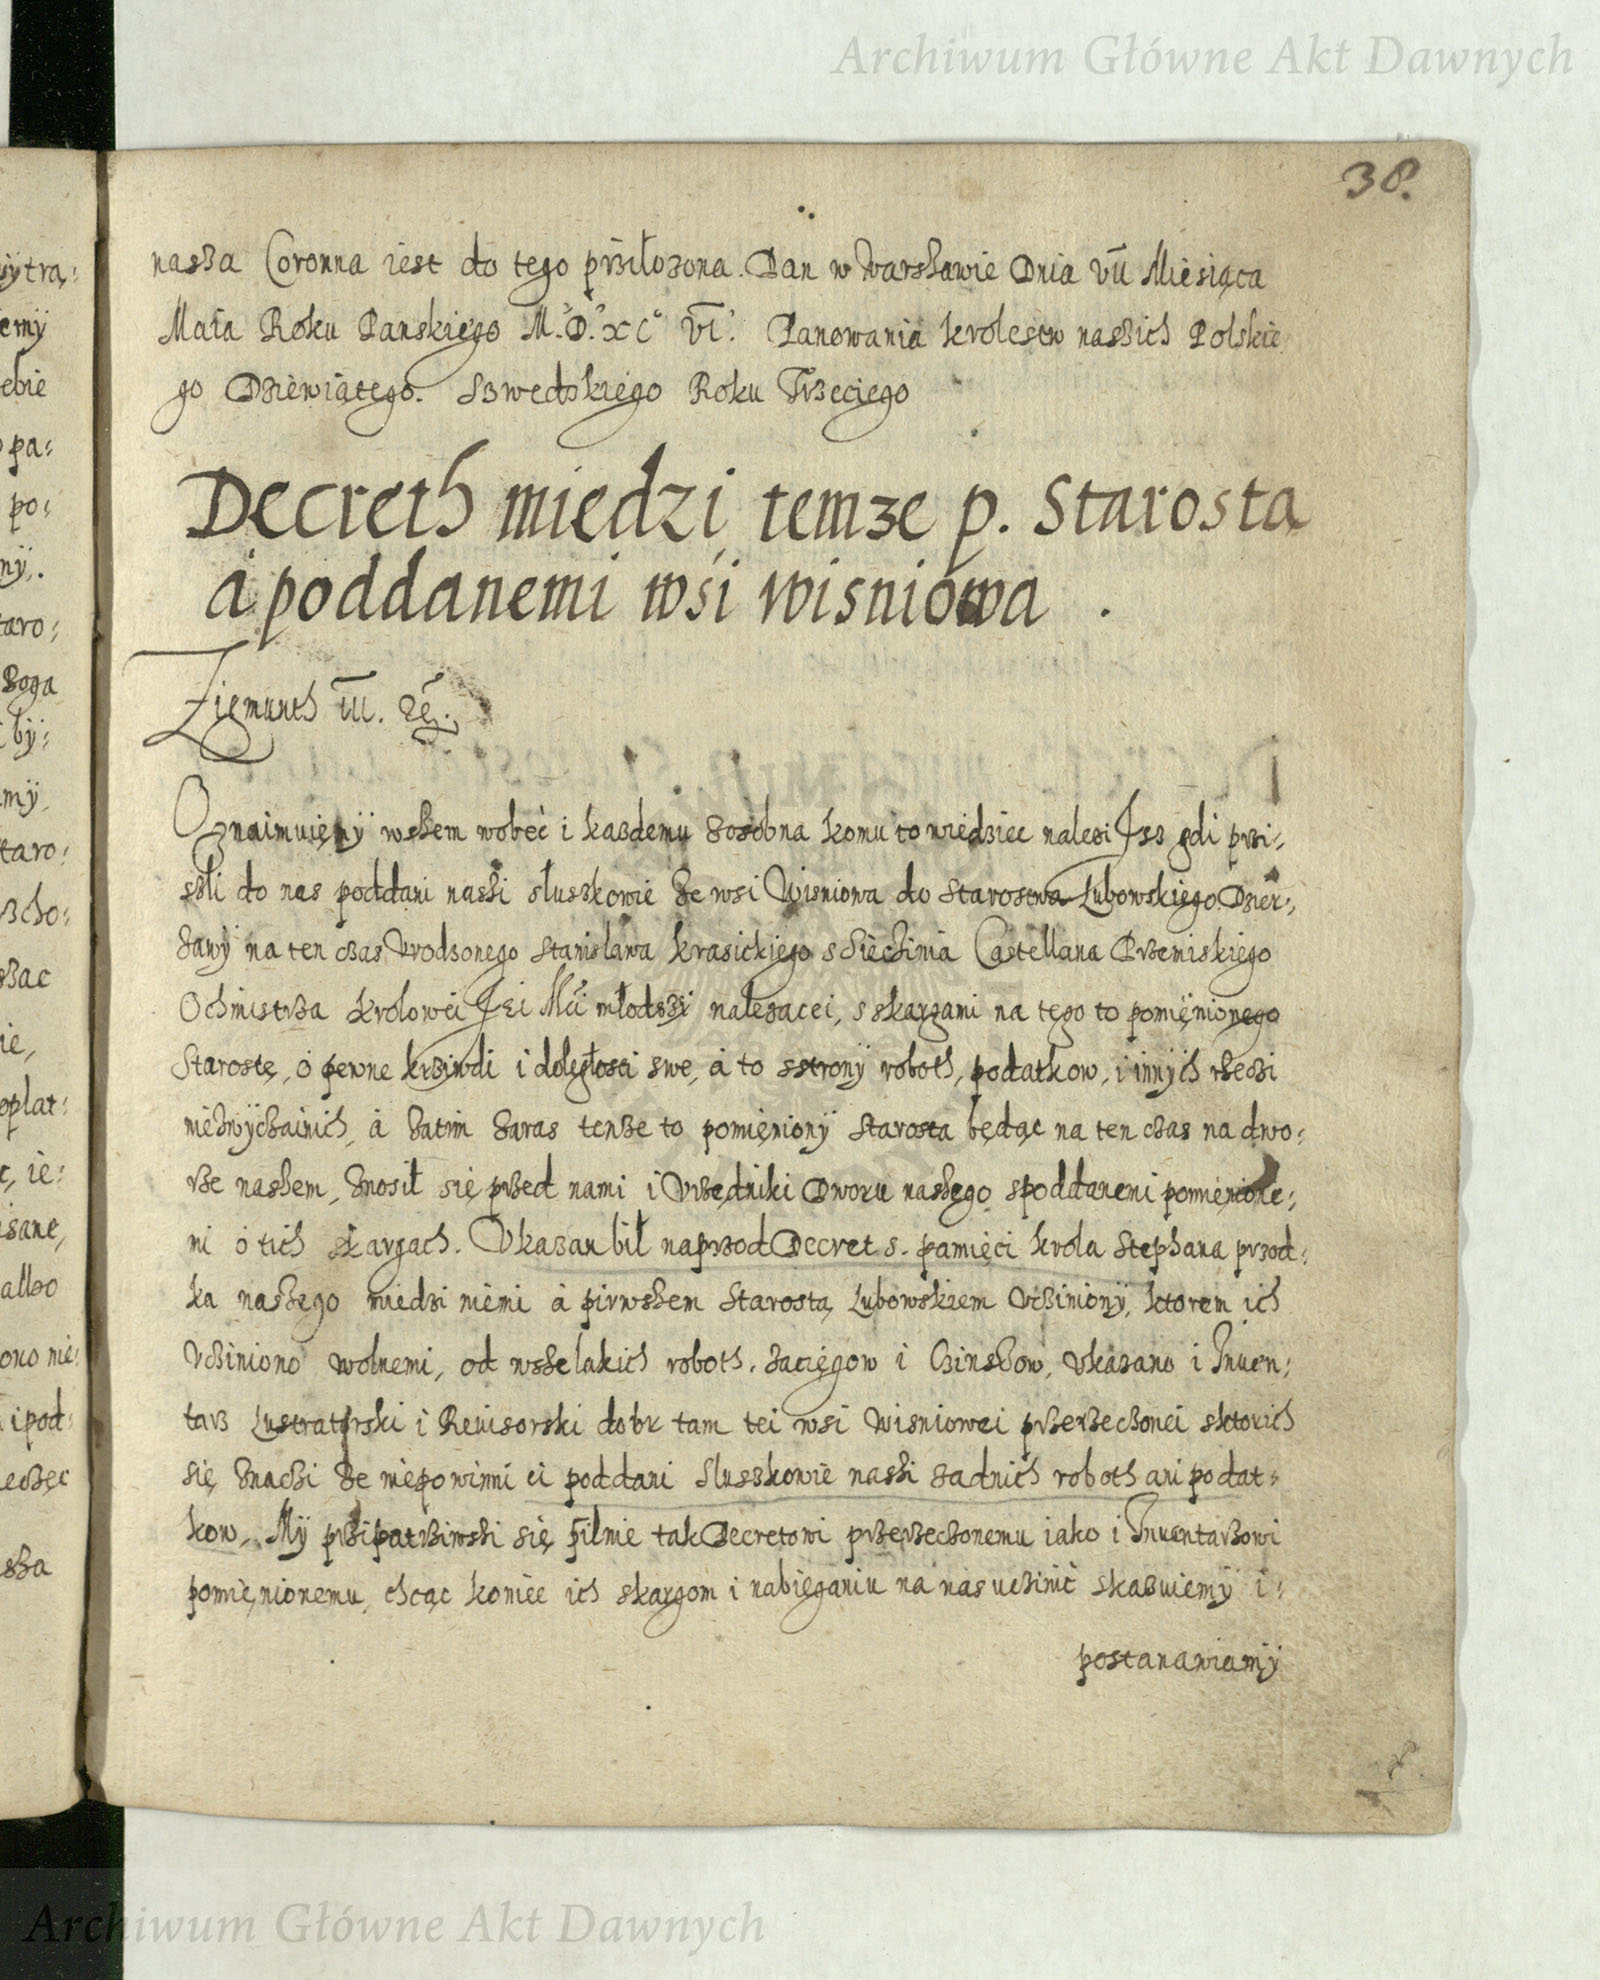 Archiwum Główne Akt Dawnych
38.
nasza Coronna iest do tego przilozona. Dan w Warszawie Dnia VII Miesiąca
Maia Roku Panskiego M.D.XC VI. Panowania krolestw naszich Polskie
go Dziewiątego. Szwedzkiego Roku Trzeciego
Decreth miedzi temze p. Starosta
a poddanemi wsi wisniowa.
Zigmunth III. etc.
Oznaimuięmÿ wszem wobec i kazdemu zosobna komu to wiedziec nalezi Isz gdi przi-
szli do nas poddani naszi słuszkowie ze wsi Wisniowa do Starostwa Lubowskiego Dzier-
zawÿ na ten czas Vrodzonego Stanisława krasickiego z Siechinia Castellana Przemiskiego
Ochmistrza krolowei Jei Mci młodszi nalezacei, s skargami na tego to pomięnionego
Starostę, o pewne krziwdi i dolęgłosci swe, a to sstronÿ roboth, podatkow, i innÿch rzeczi
niezwÿczainich, a zatim zaras tenze to pomięnionÿ Starosta będąc na ten czas na dwo-
rze naszem, znosił się przed nami i Vrzędniki Dworu naszego spoddanemi pomięnione-
mi o tich skargach. Vkazan bił naprzod Decret s. pamięci krola Stephana przod-
ka naszego miedzi niemi a pirwszem Starostą Lubowskiem Vczinionÿ, ktorem ich
Vcziniono wolnemi, od wszelakich roboth, zaciągow i Czinszow, Vkazano i Inuen-
tarz Lustratorski i Reuisorski dobr tam tei wsi Wisniowei przerzeczonei sktorich
się znaczi ze niepowinni ci poddani Sluszkowie naszi zadnich roboth ani podat-
kow. Mÿ przipatrziwszi się pilnie tak Decretowi przerzeczonemu iako i Inuentarzowi
pomięnionemu, chcąc koniec ich skargom i nabieganiu na nas uczinic skazuiemÿ i-
postanawiamÿ
Archiwum Główne Akt Dawnych